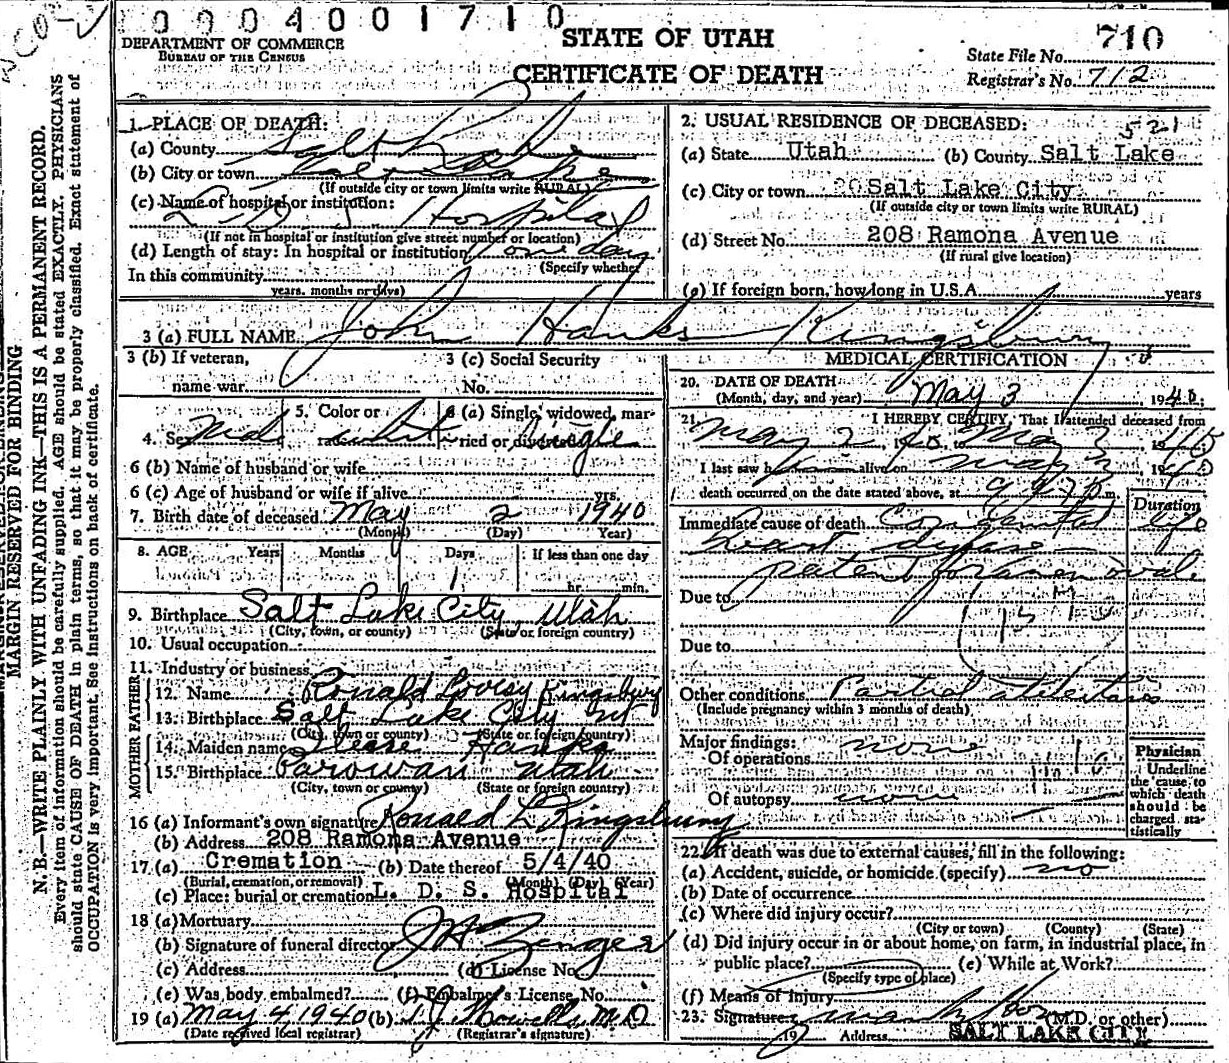 0004001710
DEPARTMENT OF COMMERCE
BUREAU OF THE CENSUS
STATE OF UTAH
CERTIFICATE OF DEATH
710
State File No.
Registrar's No. 712
MARGIN RESERVED FOR BINDING
N. B.—WRITE PLAINLY WITH UNFADING INK—THIS IS A PERMANENT RECORD.
Every item of information should be carefully supplied. AGE should be stated EXACTLY. PHYSICIANS
should state CAUSE OF DEATH in plain terms, so that it may be properly classified. Exact statement of
OCCUPATION is very important. See instructions on back of certificate.
1. PLACE OF DEATH:
(a) County Salt Lake
(b) City or town Salt Lake
(If outside city or town limits write RURAL)
(c) Name of hospital or institution:
L. D. S. Hospital
(If not in hospital or institution give street number or location)
(d) Length of stay: In hospital or institution one day
(Specify whether
In this community
years, months or days)
2. USUAL RESIDENCE OF DECEASED:
521
(a) State Utah (b) County Salt Lake
(c) City or town 20 Salt Lake City
(If outside city or town limits write RURAL)
(d) Street No. 208 Ramona Avenue
(If rural give location)
(e) If foreign born, how long in U.S.A. years
3 (a) FULL NAME John Hanks Kingsbury
3 (b) If veteran,
name war
3 (c) Social Security
No.
4. Sex Male
5. Color or
race white
6 (a) Single, widowed, mar-
ried or divorced Single
6 (b) Name of husband or wife
6 (c) Age of husband or wife if alive yrs.
7. Birth date of deceased May 2 1940
(Month) (Day) Year)
8. AGE Years Months Days If less than one day
1 hr. min.
9. Birthplace Salt Lake City, Utah
(City, town, or county) (State or foreign country)
10. Usual occupation
11. Industry or business
FATHER
12. Name Ronald Lovesy Kingsbury
13. Birthplace Salt Lake City Ut
(City, town or county) (State or foreign country)
MOTHER
14. Maiden name Hanks
15. Birthplace Parowan Utah
(City, town or county) (State or foreign country)
16 (a) Informant's own signature Ronald L Kingsbury
(b) Address 208 Ramona Avenue
17. (a) Cremation (b) Date thereof 5/4/40
(Burial, cremation, or removal) (Month) (Day) (Year)
(c) Place: burial or cremation L. D. S. Hospital
18 (a) Mortuary
(b) Signature of funeral director
(c) Address (d) License No.
(e) Was body embalmed? (f) Embalmer's License No.
19 (a) May 4, 1940 (b) M.D.
(Date received local registrar) (Registrar's signature)
MEDICAL CERTIFICATION
20. DATE OF DEATH
(Month, day, and year) May 3 1940.
21. I HEREBY CERTIFY, That I attended deceased from
May 2 1940 to May 3 1940
I last saw h alive on May 3 1940
death occurred on the date stated above, at m.
Duration
Immediate cause of death Congenital life
heart disease
patent foramen oval.
Due to
Due to
Other conditions Partial atelectasis
(Include pregnancy within 3 months of death)
Major findings:
Of operations none
Of autopsy none
Physician
Underline
the cause to
which death
should be
charged sta-
tistically
22. If death was due to external causes, fill in the following:
(a) Accident, suicide, or homicide (specify) no
(b) Date of occurrence
(c) Where did injury occur?
(City or town) (County) (State)
(d) Did injury occur in or about home, on farm, in industrial place, in
public place? (e) While at Work?
(Specify type of place)
(f) Means of Injury
23. Signature (M.D. or other)
19 Address SALT LAKE CITY